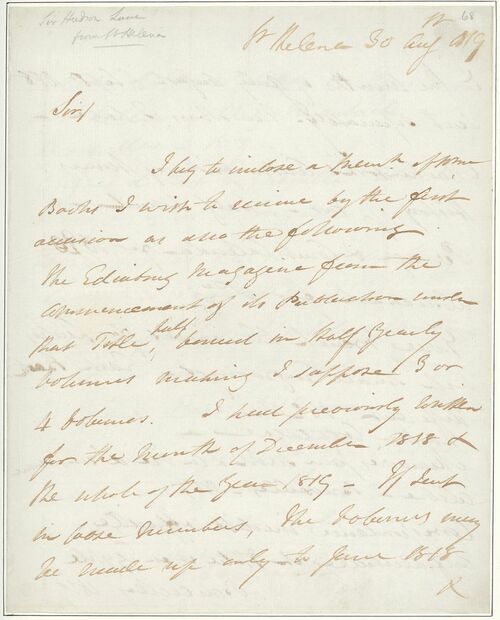 Sir Hudson Lowe
from St Helena
68
St Helena 30 Augt 1819
Sir/
I beg to inclose a Memm of some
Books I wish to receive by the first
occasion as also the following
The Edinburg Magazine from the
Commencement of its Publication under
that Title, half bound in half Yearly
Volumes making I suppose 3 or
4 Volumes. I had previously written
for the Month of December 1818 &
the whole of the Year 1819 - If sent
in loose numbers, the Volumes may
be made up only to June 1818